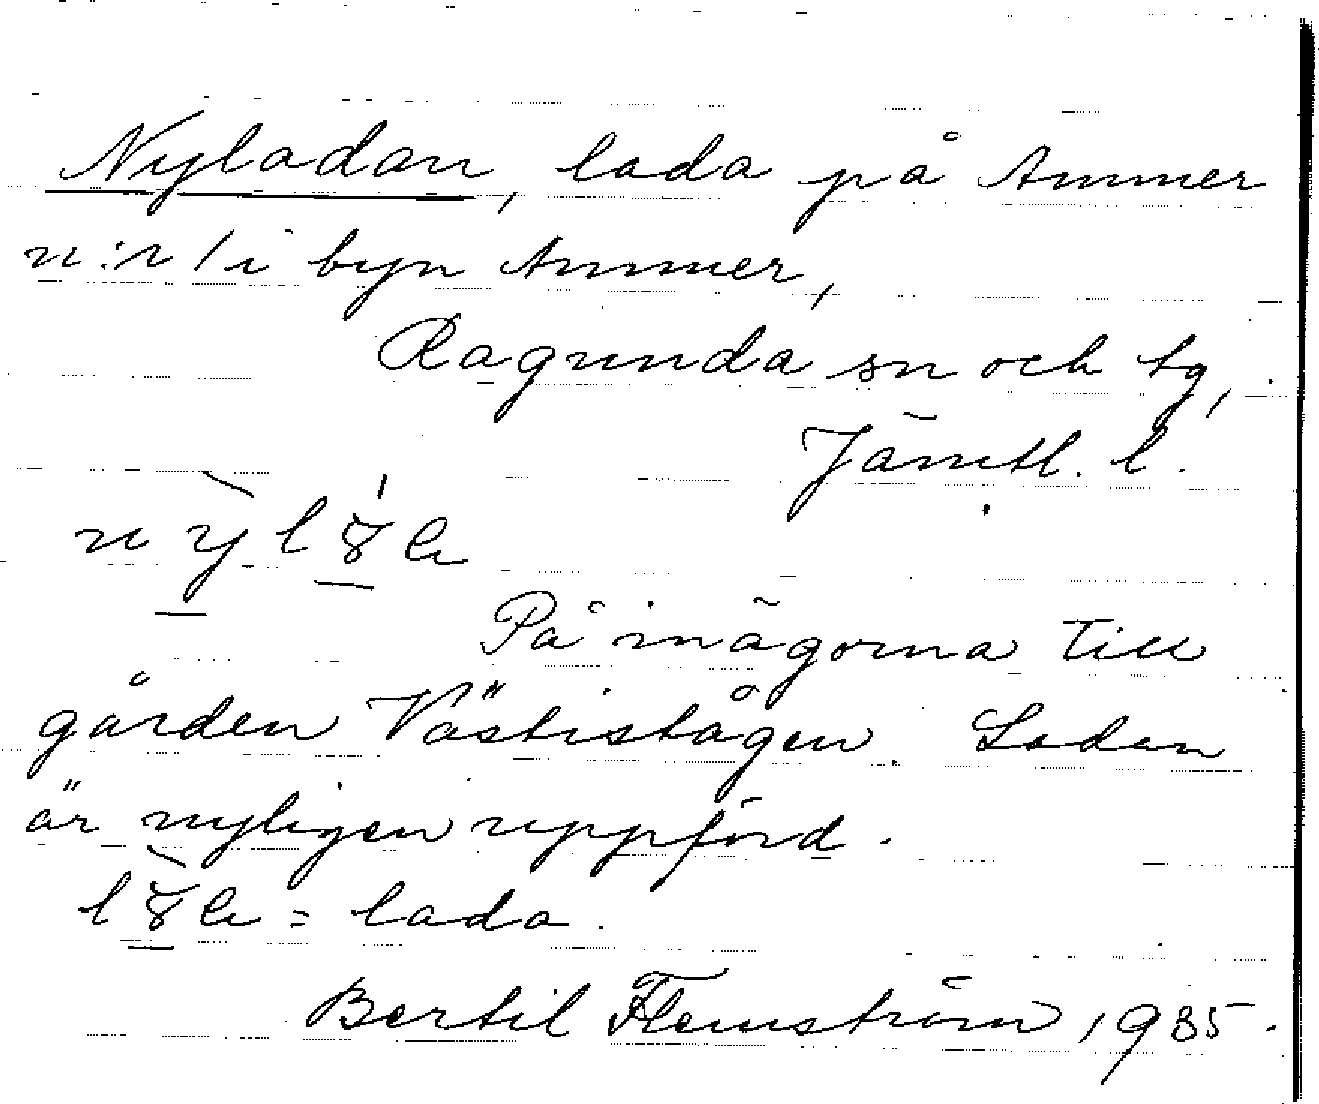 Nyladan, lada på Ammer
n:r 1 i byn Ammer,
Ragunda sn och tg,
Jämtl. l.
På inägorna till
gården Västistågen. Ladan
är nyligen uppförd.
= lada.
Bertil Flemström, 1935.